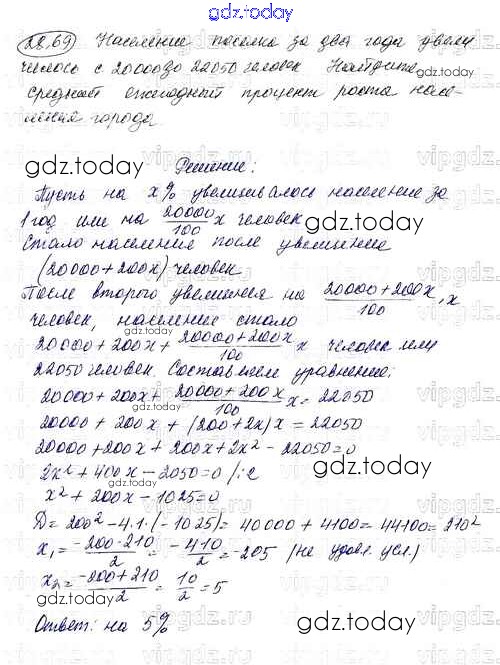 gdz.today
28.69 Население поселка за два года увели
чилось с 20000 до 22050 человек Найдите
средний ежегодный процент роста насе-
ления города
Решение:
Пусть на x% увеличивалось население за
1 год или на 20000/100 x человек
Стало население после увеличение
(20000+200x) человек
После второго увеличения на (20000+200x)/100 · x
человек, население стало
20000+200x + (20000+200x)/100 x человек или
22050 человек. Составляем уравнение:
20000+200x + (20000+200x)/100 x = 22050
20000 + 200x + (200+2x)x = 22050
20000+200x + 200x+2x² - 22050=0
2x² + 400x - 2050=0 /:2
x² + 200x - 1025=0
D = 200² - 4·1·(-1025) = 40000 + 4100 = 44100 = 210²
x₁ = (-200-210)/2 = -410/2 = -205 (не удовл. усл.)
x₂ = (-200+210)/2 = 10/2 = 5
Ответ: на 5%
gdz.today